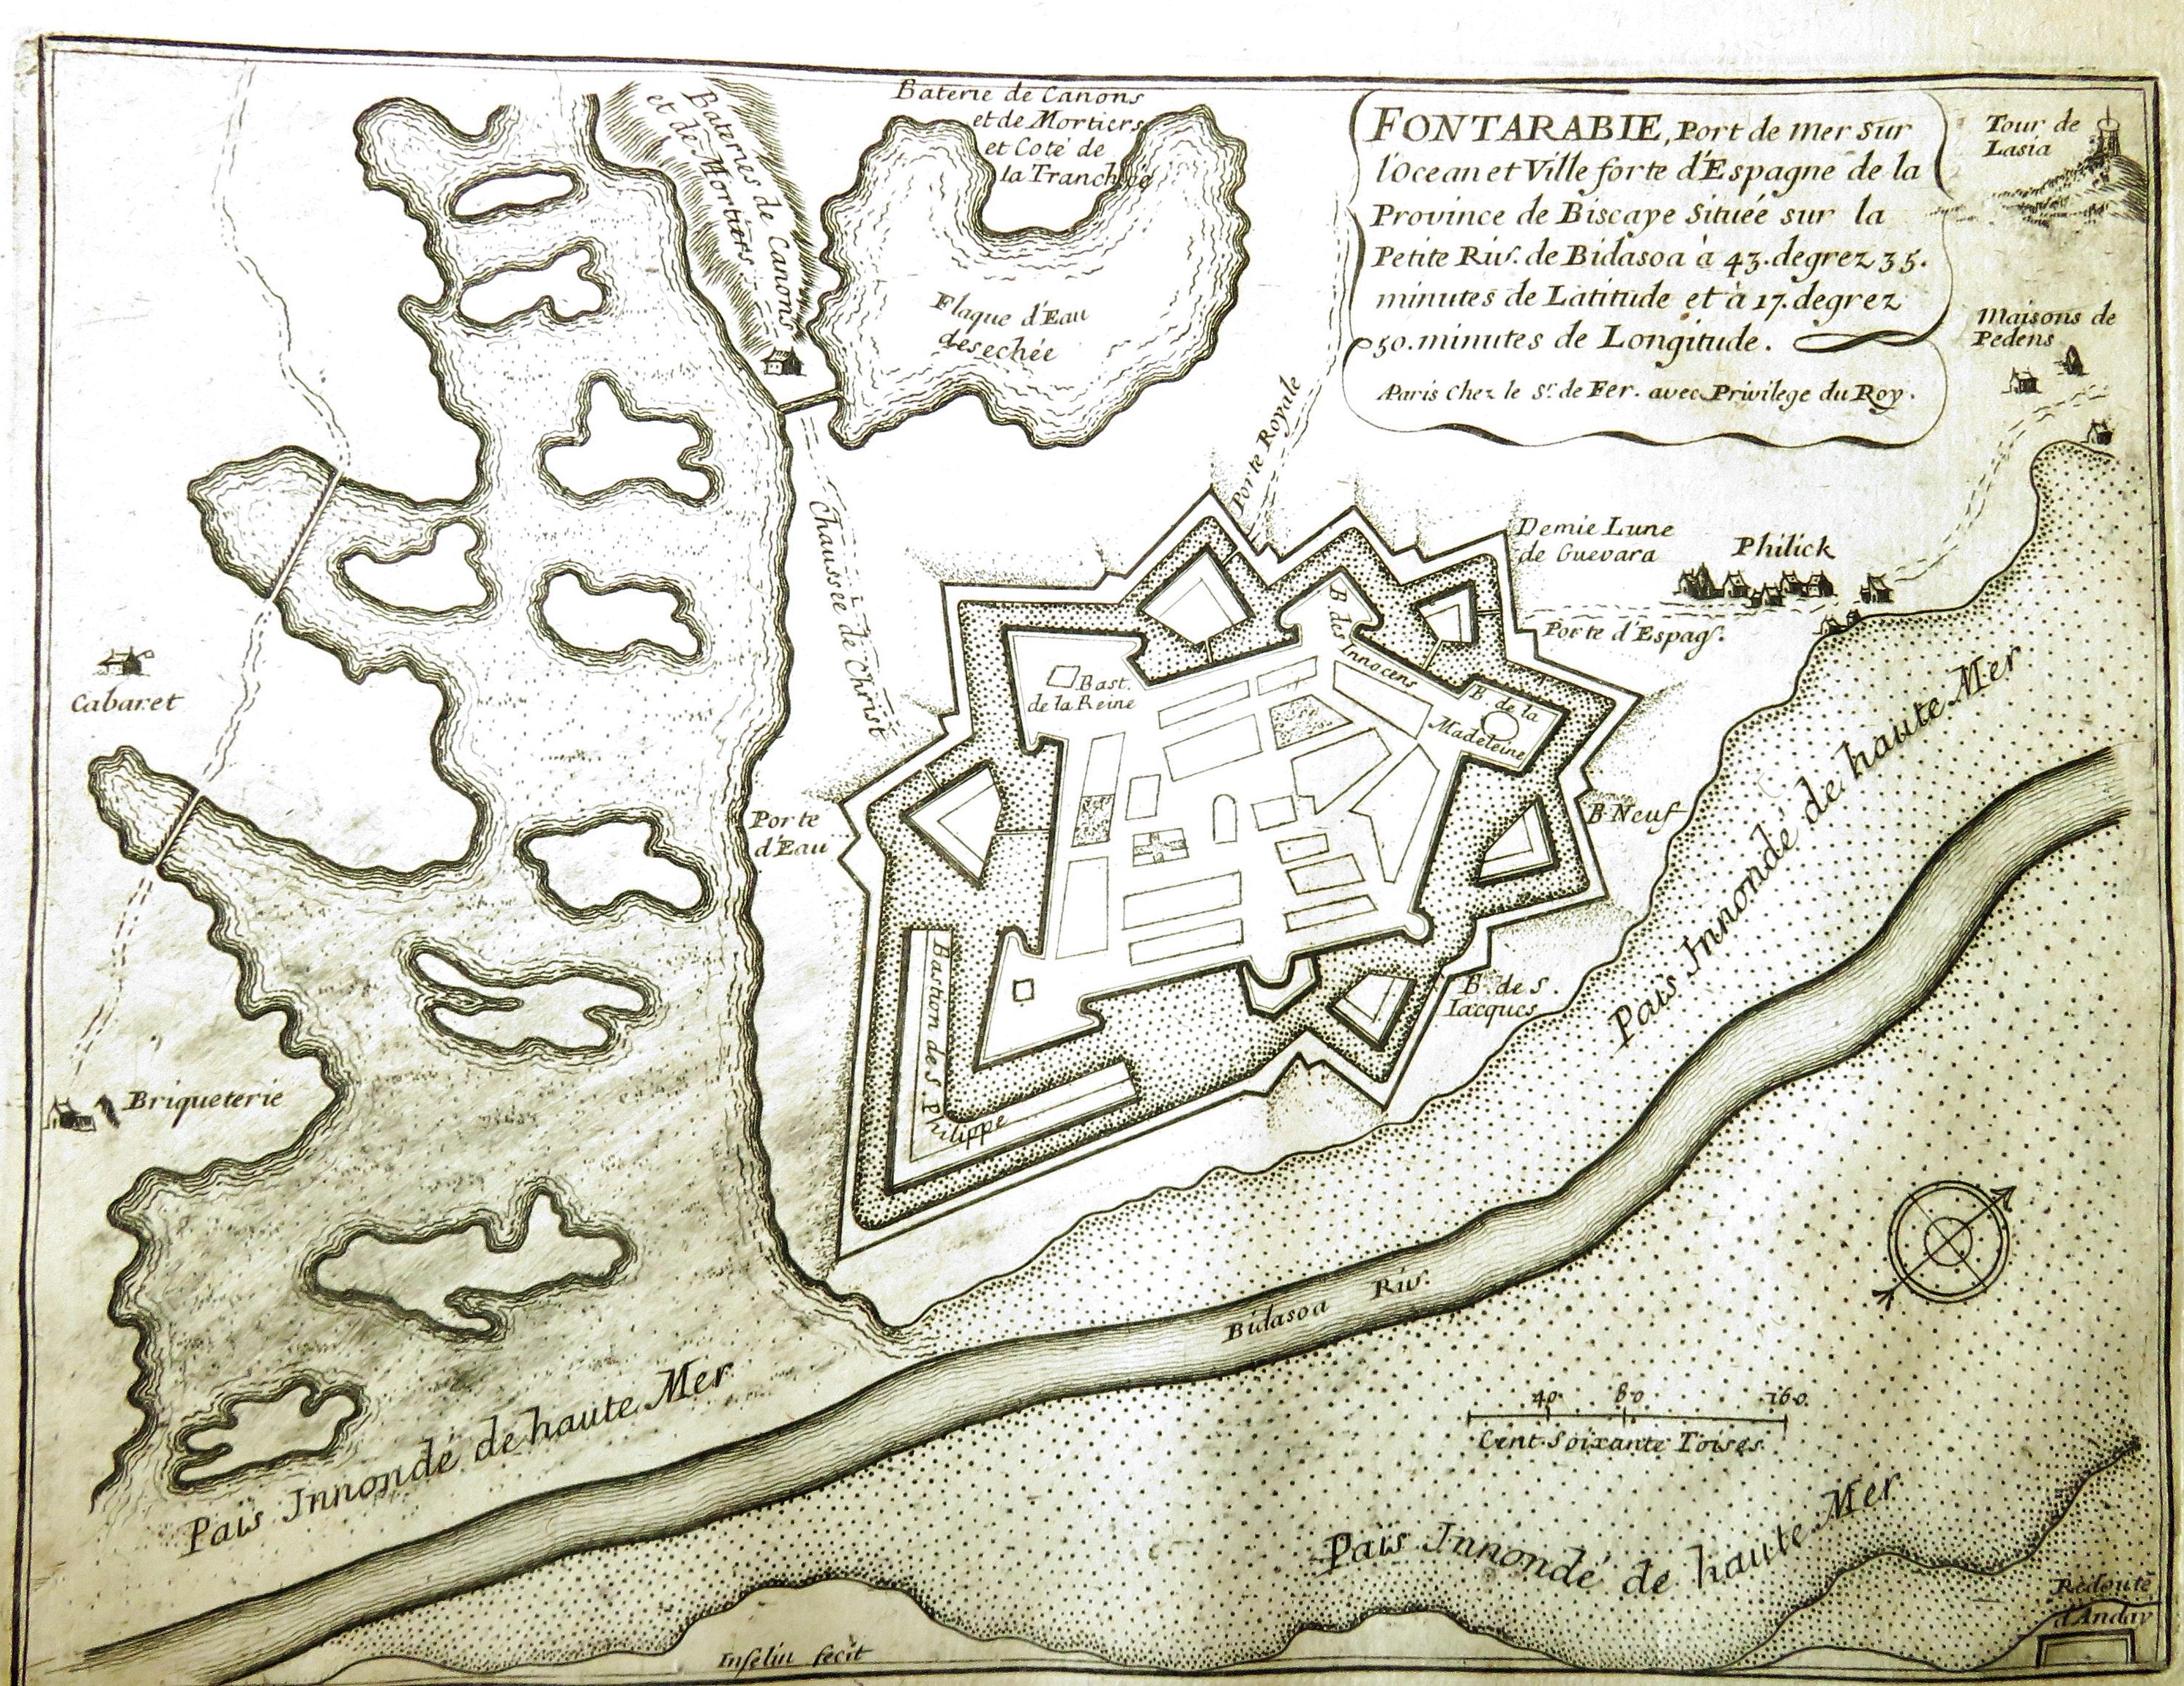 Baterie de Canons
et de Mortiers
et Coté de
la Tranchée
Bateries de Canons
et de Mortiers
Flaque d'Eau
desechée
FONTARABIE, Port de mer Sur
l'Ocean et Ville forte d'Espagne de la
Province de Biscaye Située sur la
Petite Riv. de Bidasoa à 43. degrez 35.
minutes de Latitude et à 17. degrez
50. minutes de Longitude.
Paris Chez le Sr. de Fer. avec Privilege du Roy.
Tour de
Lasia
Maisons de
Pedens
Porte Royale
Chaussée de Christ
Demie Lune
de Guevara
Philick
Porte d'Espag.
Cabaret
Bast.
de la Reine
B des
Innocens
B. de la
Madeleine
Porte
d'Eau
B. Neuf
Pais Innondé de haute Mer
Bastion de S.
Philippe
B. de S.
Iacques
Briqueterie
Bidasoa Riv.
Pais Innondé de haute Mer
40 80 160.
Cent Soixante Toises.
Pais Innondé de haute Mer
Redoute
d'Anday
Inselin fecit